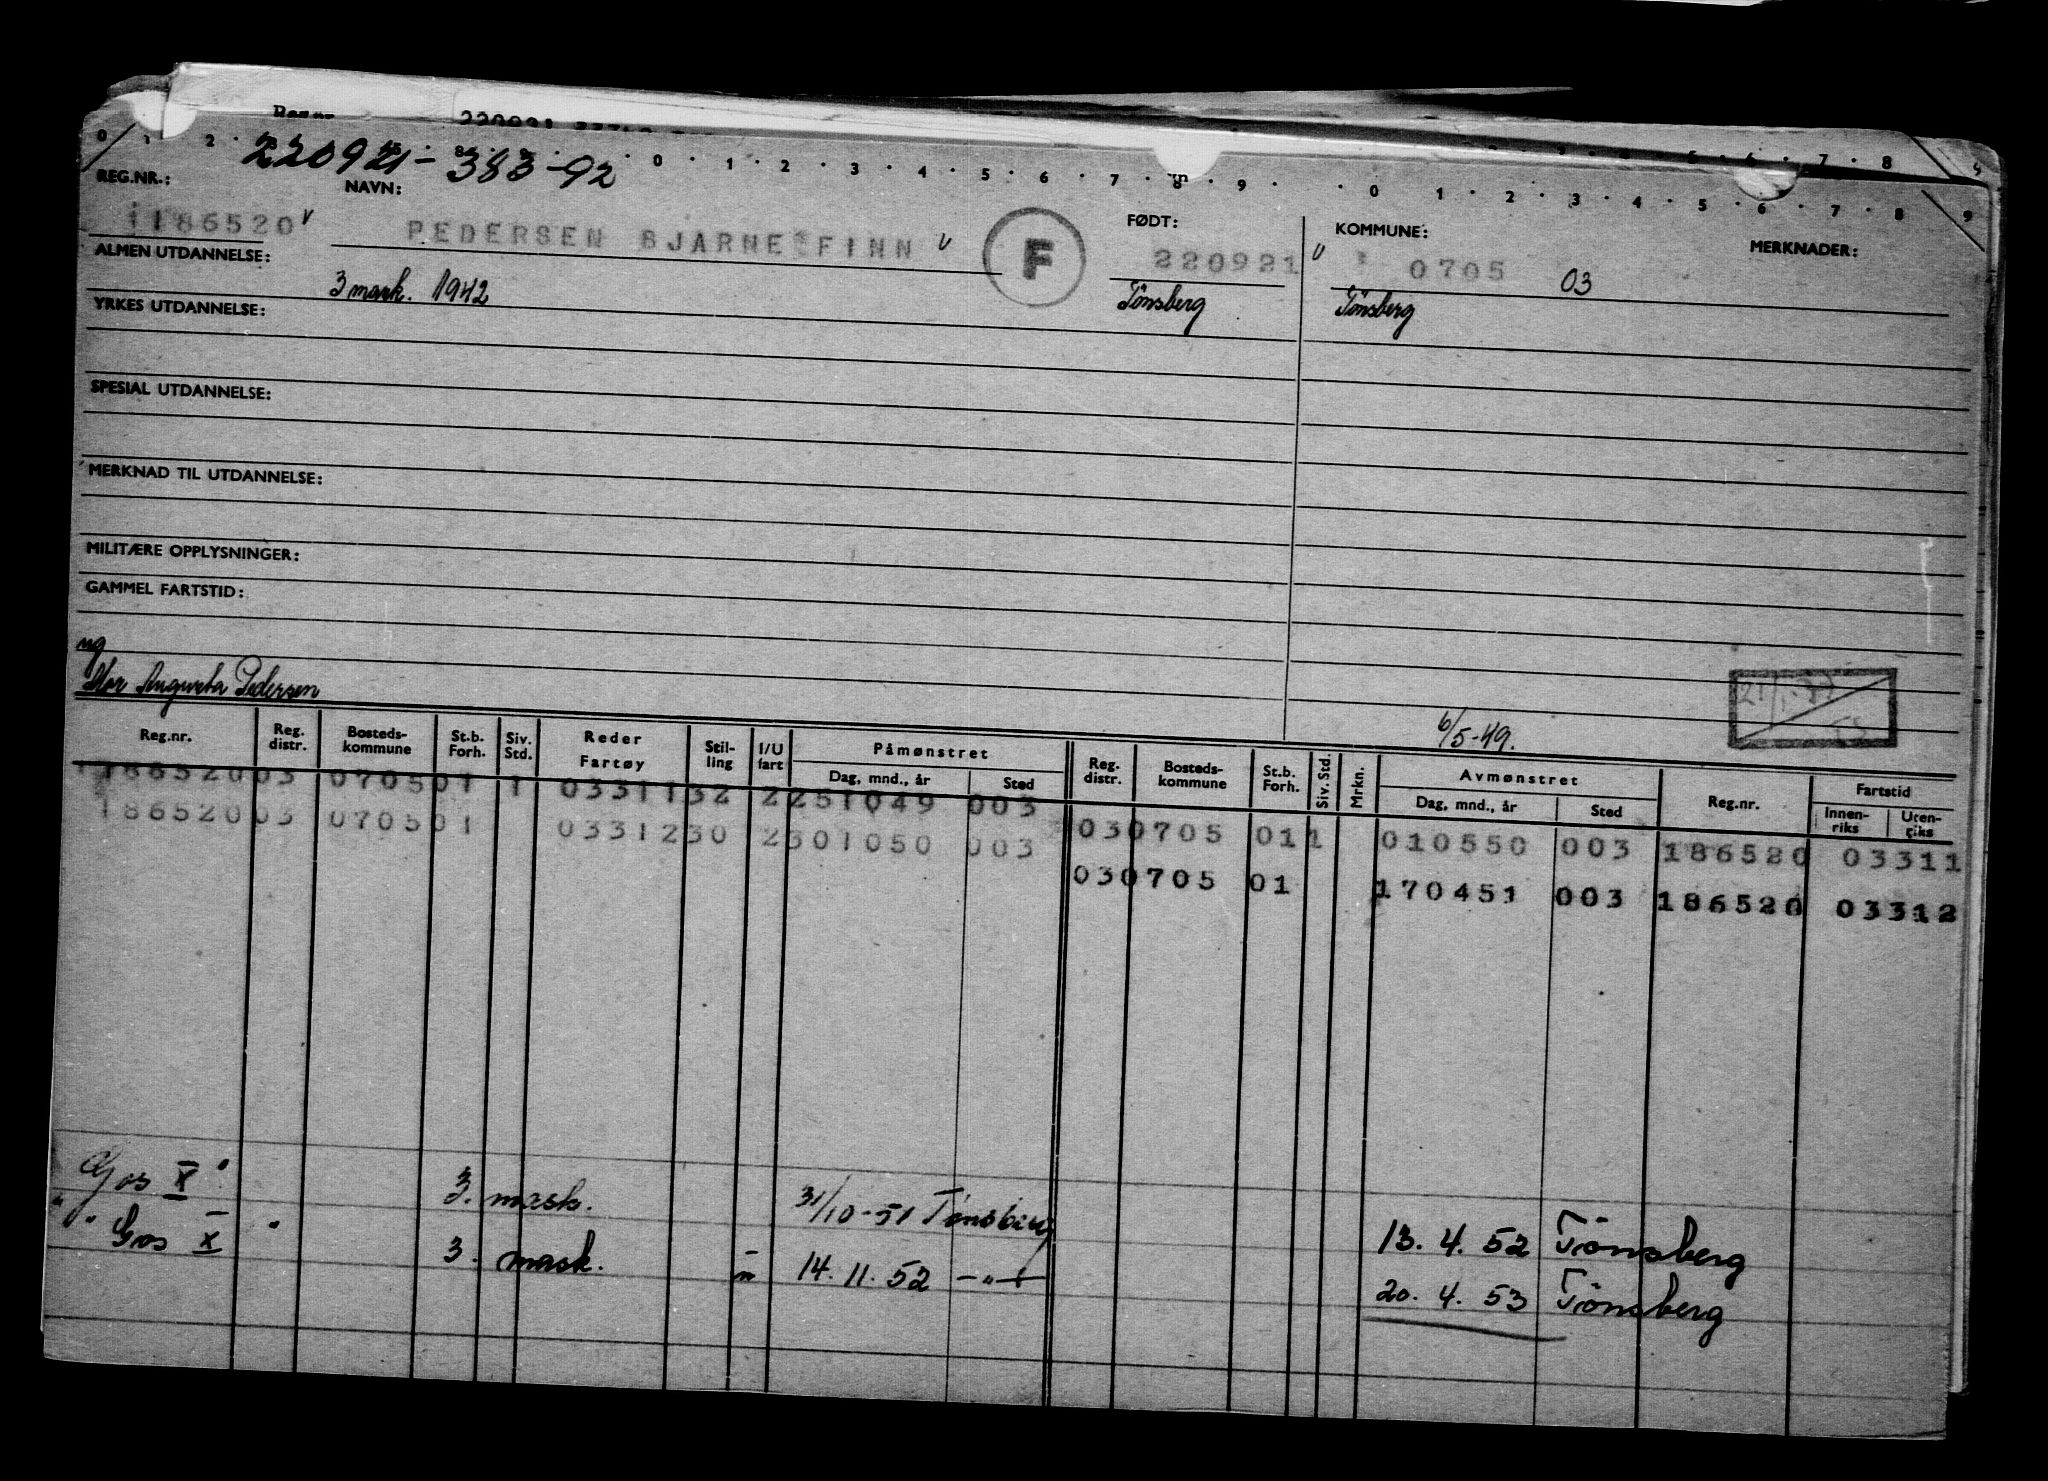 220921
0 1 2 0 1 2 3 4 5 6 7 8 9 0 1 2 3 4 5 6 7 8 9
220921-383-92
REG.NR.: NAVN: FØDT: KOMMUNE: MERKNADER:
186520 v PEDERSEN BJARNE FINN v F 220921 v 0705 03
ALMEN UTDANNELSE: 3 mask. 1942 Tönsberg Tönsberg
YRKES UTDANNELSE:
SPESIAL UTDANNELSE:
MERKNAD TIL UTDANNELSE:
MILITÆRE OPPLYSNINGER:
GAMMEL FARTSTID:
ug
Mor Augusta Pedersen
6/5-49.
Reg.nr. Reg. distr. Bosteds-kommune St.b. Forh. Siv. Std. Reder Fartøy Stil-ling I/U fart Påmønstret Dag, mnd., år Sted Reg. distr. Bosteds-kommune St.b. Forh. Siv. Std. Mrkn. Avmønstret Dag, mnd., år Sted Reg.nr. Fartstid Innen-riks Uten-riks
186520 03 0705 01 1 03311 32 2 251049 003 03 0705 01 1 010550 003 186520 03311
186520 03 0705 01 03312 30 2 301050 003 03 0705 01 170451 003 186520 03312
Gos X 3. mask. 31/10-51 Tönsberg 13. 4. 52 Tönsberg
" " Gos X " 3. mask. 14. 11. 52 -"- 20. 4. 53 Tönsberg